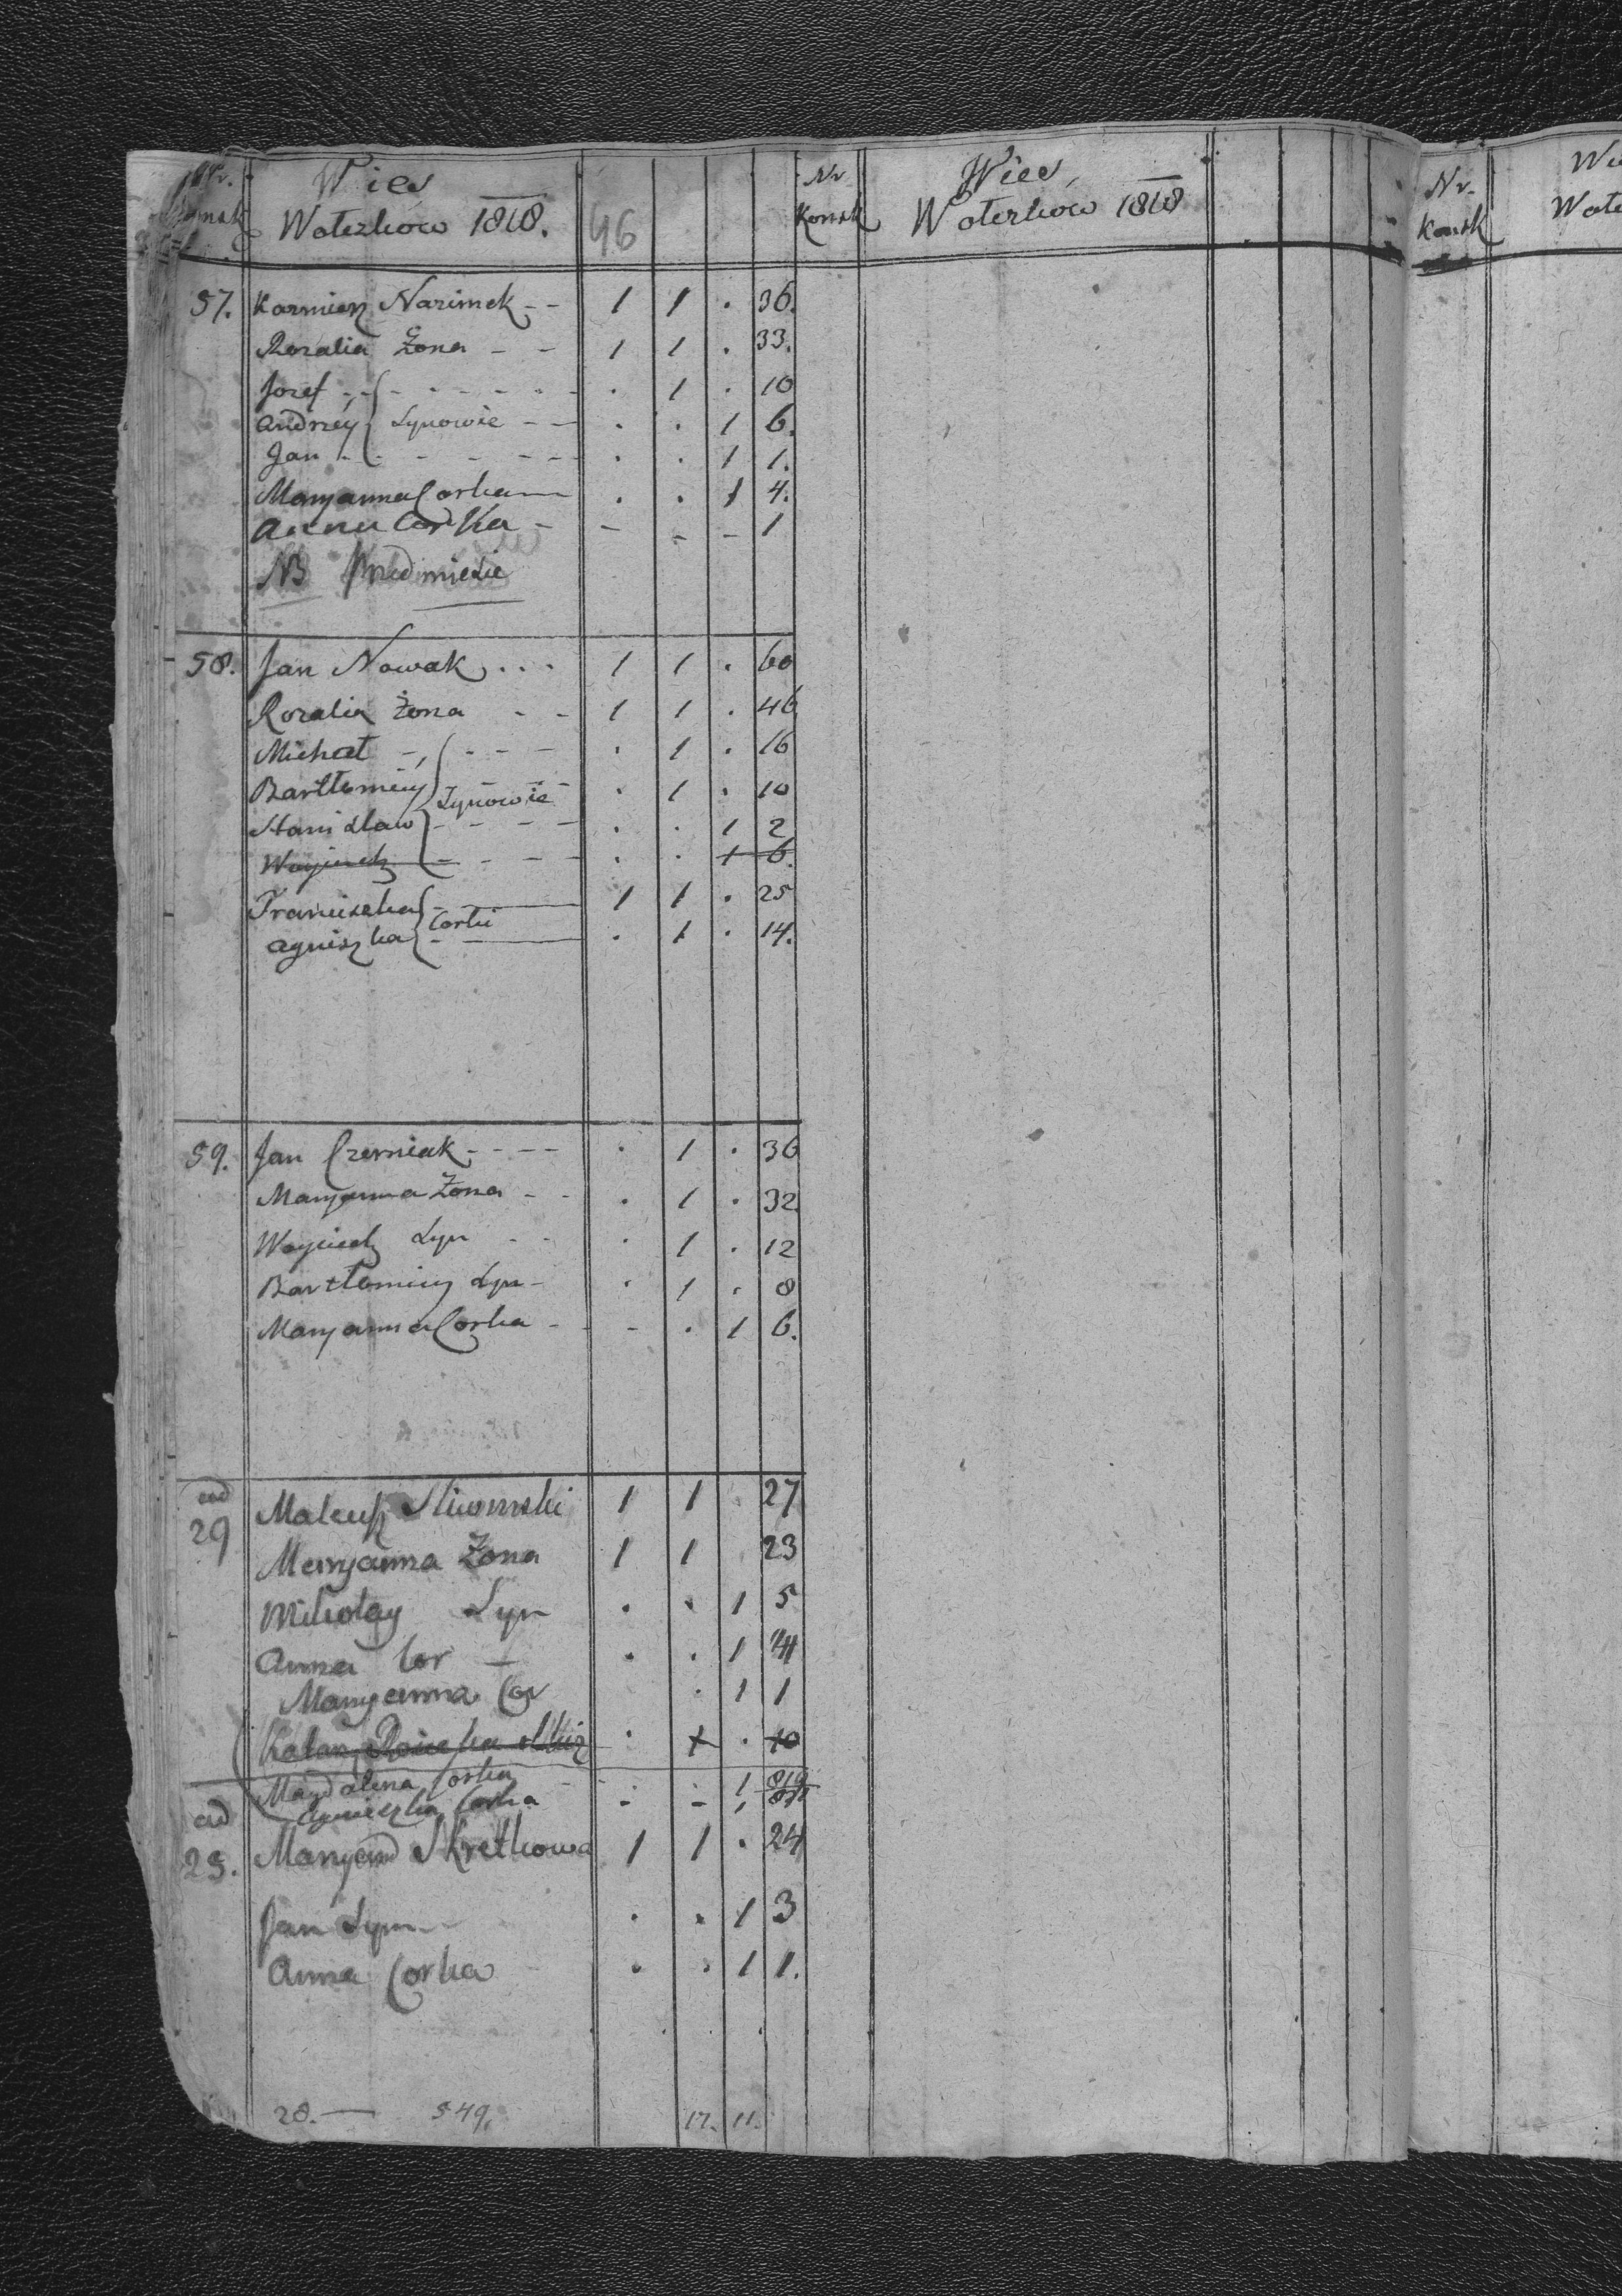 Nr. Wies
Konsk Woterkow 1818. 46
57. Kazmierz Narimek - - 1 1 . 36.
Rozalia Żona - - 1 1 . 33.
Jozef - - - - . 1 . 10
Andrzey Synowie - - . . 1 6.
Jan - - - - . . 1 1.
Maryanna Corka . . 1 4.
Anna Corka - - - - 1
NB Przedmiescie
58. Jan Nowak . . . 1 1 . 60
Rozalia Żona - - 1 1 . 46
Michał - - - - . 1 . 16
Bartłomiey Synowie - . 1 . 10
Stanisław - - - - . . 1 2
Woyciech - - - - . . 1 6.
Franciszka 1 1 . 25
Agniszka Corki . 1 . 14.
59. Jan Czerniak - - - - . 1 . 36
Maryanna Żona - - . 1 . 32
Woyciech Syn - - . 1 . 12
Bartłomiey Syn - . 1 . 8
Maryanna Corka - - . 1 6.
ad
29 Mateusz 1 1 . 27
Maryanna Żona 1 1 23
Mikołay Syn . . 1 5
Anna Cor — . . 1 4
Maryanna Cor . 1 1
. + . 10
Magdalena Corka - . . 1
Agnieszka Corka - - 1
ad
25. Maryanna Skretkowa 1 1 . 24
Jan Syn . . 1 3
Anna Corka . . 1 1.
28. — 549. 17. 11.
Nr Wies
Konsk Woterkow 1818
Nr. Wie
Konsk Wote